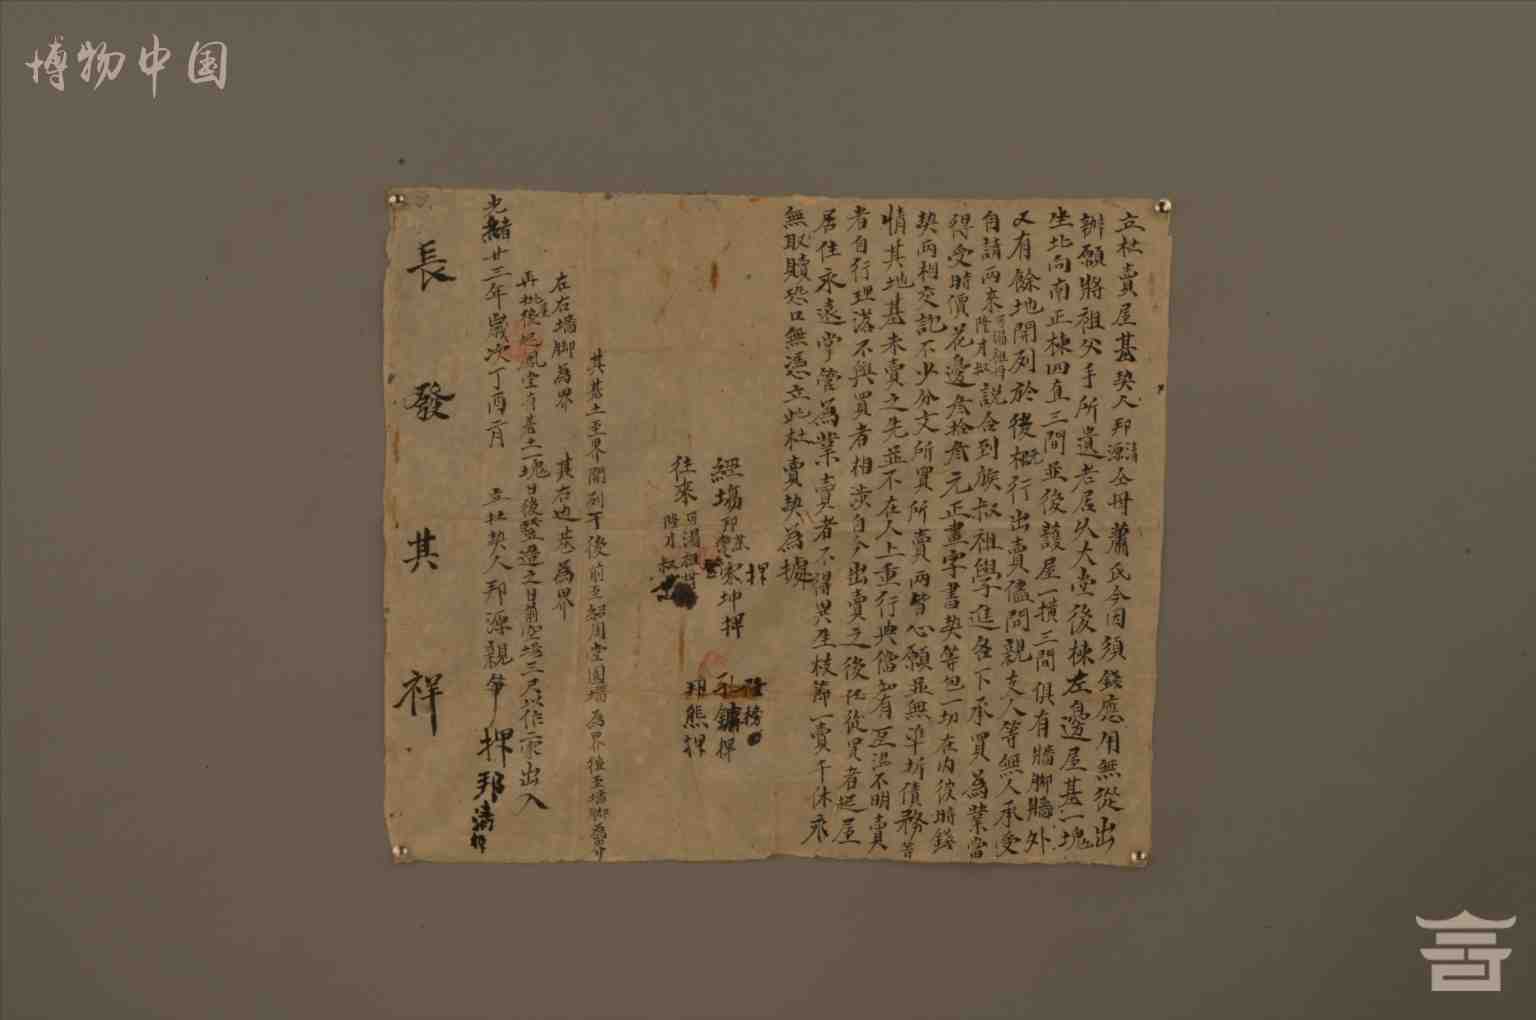 博物中国
立杜賣屋基契人邦清源仝母蕭氏今因須錢應用無從出
辦願將祖父手所遺老居久大堂後棟左邊屋基一塊
坐北向南正棟四直三間並後護屋一橫三間俱有牆脚牆外
又有餘地開列於後概行出賣儘問親支人等無人承受
自請兩來隆才叔說合到族叔祖學進名下承買為業當
得受時價花邊叁拾叁元正畫字書契等包一切在內彼時錢
契兩相交訖不少分文所買所賣兩皆心願並無準折債務等
情其地基未賣之先並不在人上重行典當如有互混不明賣
者自行理落不與買者相涉自今出賣之後任從買者起屋
居住永遠掌管為業賣者不得異生枝節一賣千休永
無取贖恐口無憑立此杜賣契為據
經場
押
家坤押
隆榜
鏞押
邦熊押
往來
隆才叔
其基土至界開列于後前至紹周堂圍墻為界後至墻脚為界
左右墻脚為界 其右边巷為界
再批後起鳳堂有基土一塊日後豎造之日前空塲三尺以作二家出入
光緒廿三年歲次丁酉 月 立杜契人邦源親筆押邦清押
長發其祥